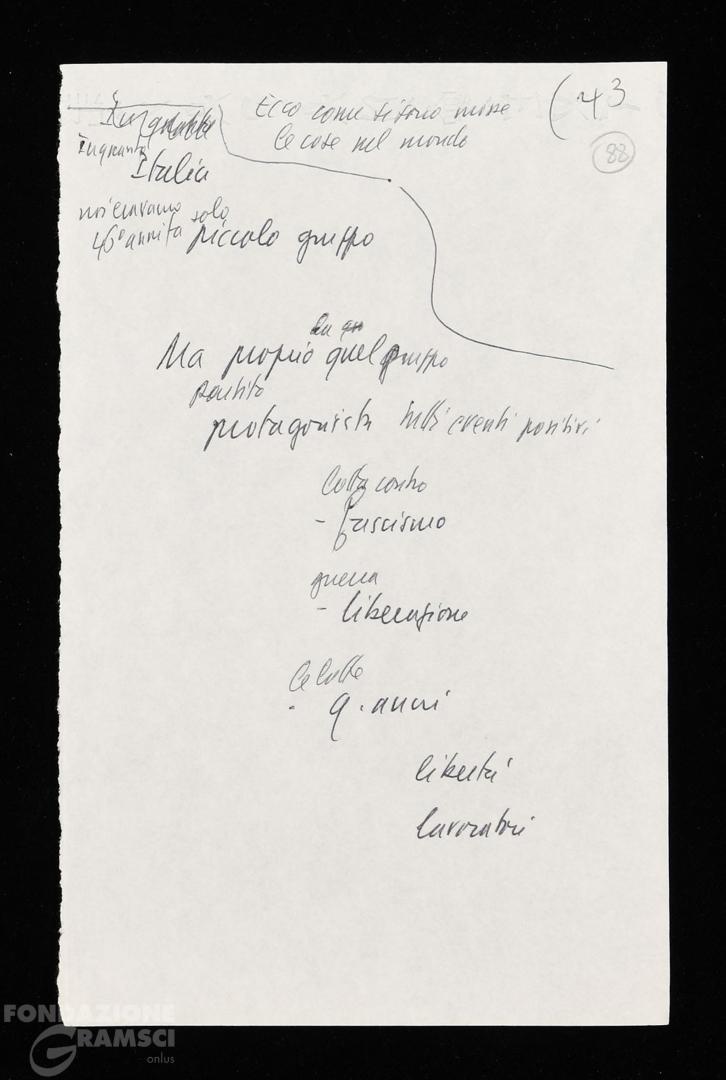 Ecco come si sono messe
le cose nel mondo
43
88
In quanto
Italia
noi eravamo solo
46° annita piccolo gruppo
Ma proprio quel gruppo
partito
protagonista tutti eventi positivi
lotta contro
- fascismo
guerra
- liberazione
le lotte
- q. anni
libertà
lavoratori
FONDAZIONE
GRAMSCI
onlus